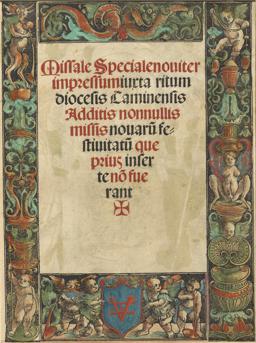 Missale Specialenouiter
impressumiuxta ritum
diocesis Caminensis
Additis nonnullis
missis nouarū fe-
stiuitatū que
prius inser
te nō fue
rant